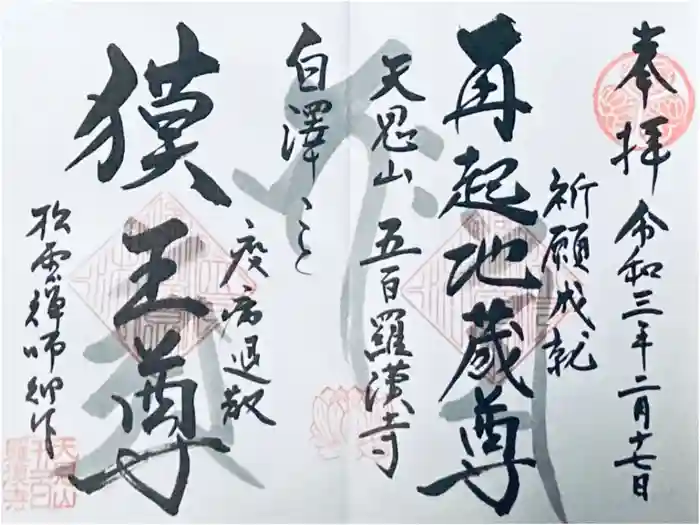 奉拝 令和三年二月十七日
祈願成就
再起地蔵尊
天恩山 五百羅漢寺
白澤こと
獏王尊
疫病退散
松雲禅師御作
天恩山
五百
羅漢寺